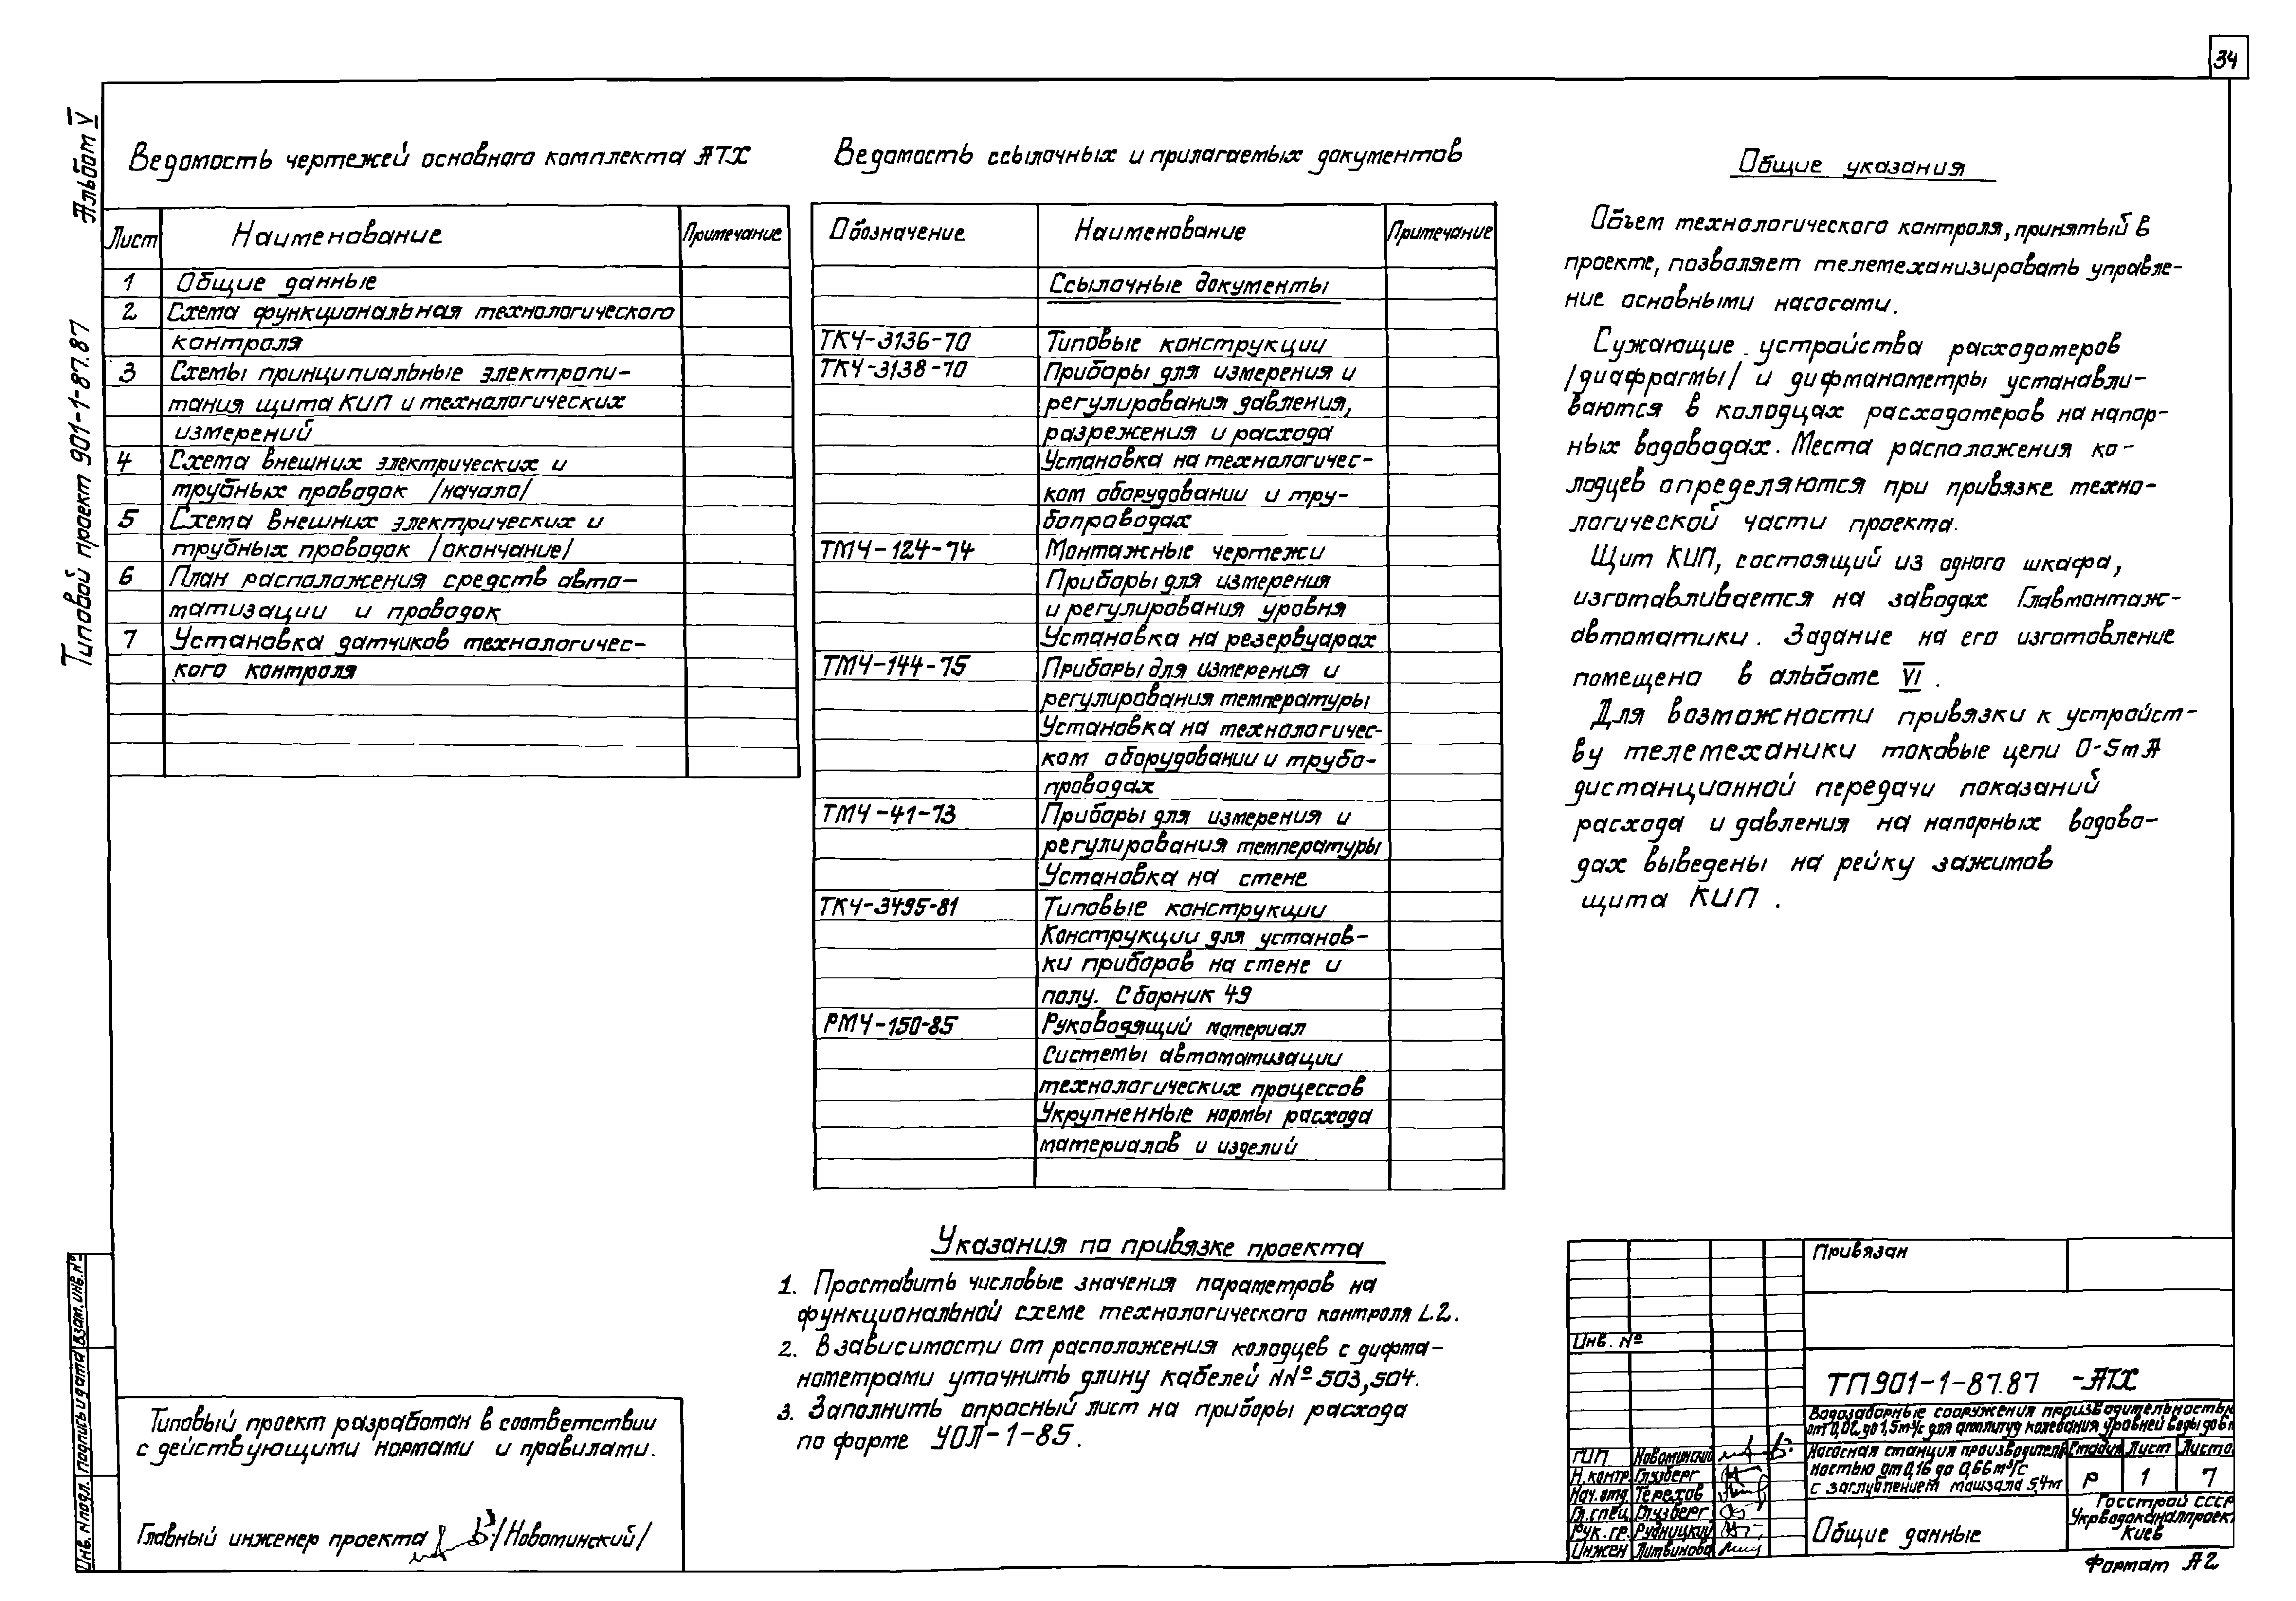 34
Альбом V
Типовой проект 901-1-87.87
Взам. инв. №
Подпись и дата
Инв. № подл.
Ведомость чертежей основного комплекта АТХ
Лист Наименование Примечание
1 Общие данные
2 Схема функциональная технологического
контроля
3 Схемы принципиальные электропи-
тания щита КИП и технологических
измерений
4 Схема внешних электрических и
трубных проводок /начало/
5 Схема внешних электрических и
трубных проводок /окончание/
6 План расположения средств авто-
матизации и проводок
7 Установка датчиков технологичес-
кого контроля
Ведомость ссылочных и прилагаемых документов
Обозначение Наименование Примечание
Ссылочные документы
ТК4-3136-70 Типовые конструкции
ТК4-3138-70 Приборы для измерения и
регулирования давления,
разрежения и расхода
Установка на технологичес-
ком оборудовании и тру-
бопроводах
ТМ4-124-74 Монтажные чертежи
Приборы для измерения
и регулирования уровня
Установка на резервуарах
ТМ4-144-75 Приборы для измерения и
регулирования температуры
Установка на технологичес-
ком оборудовании и трубо-
проводах
ТМ4-41-73 Приборы для измерения и
регулирования температуры
Установка на стене
ТК4-3495-81 Типовые конструкции
Конструкции для установ-
ки приборов на стене и
полу. Сборник 49
РМ4-150-85 Руководящий материал
Системы автоматизации
технологических процессов
Укрупненные нормы расхода
материалов и изделий
Общие указания
Объем технологического контроля, принятый в
проекте, позволяет телемеханизировать управле-
ние основными насосами.
Сужающие устройства расходомеров
/диафрагмы/ и дифманометры устанавли-
ваются в колодцах расходомеров на напор-
ных водоводах. Места расположения ко-
лодцев определяются при привязке техно-
логической части проекта.
Щит КИП, состоящий из одного шкафа,
изготавливается на заводах Главмонтаж-
автоматики. Задание на его изготовление
помещено в альбоме VI.
Для возможности привязки к устройст-
ву телемеханики токовые цепи 0-5mA
дистанционной передачи показаний
расхода и давления на напорных водово-
дах выведены на рейку зажимов
щита КИП.
Указания по привязке проекта
1. Проставить числовые значения параметров на
функциональной схеме технологического контроля L.2.
2. В зависимости от расположения колодцев с дифма-
нометрами уточнить длину кабелей NN° 503, 504.
3. Заполнить опросный лист на приборы расхода
по форме УОЛ-1-85.
Типовый проект разработан в соответствии
с действующими нормами и правилами.
Главный инженер проекта /Новоминский/
Привязан
Инв. №
ТП 901-1-87.87 -АТХ
Водозаборные сооружения производительностью
от 0,02 до 1,5 м³/с для амплитуд колебания уровней воды до 6м
ГИП Новоминский
Н.контр. Глузберг
Нач.отд. Терехов
Гл.спец. Глузберг
Рук.гр. Рудницкий
Инжен Литвинова
Насосная станция производитель-
ностью от 0,16 до 0,66 м³/с
с заглублением машзала 5,4м
Стадия Лист Листо
Р 1 7
Общие данные
Госстрой СССР
Укрводоканалпроект
Киев
Формат А2